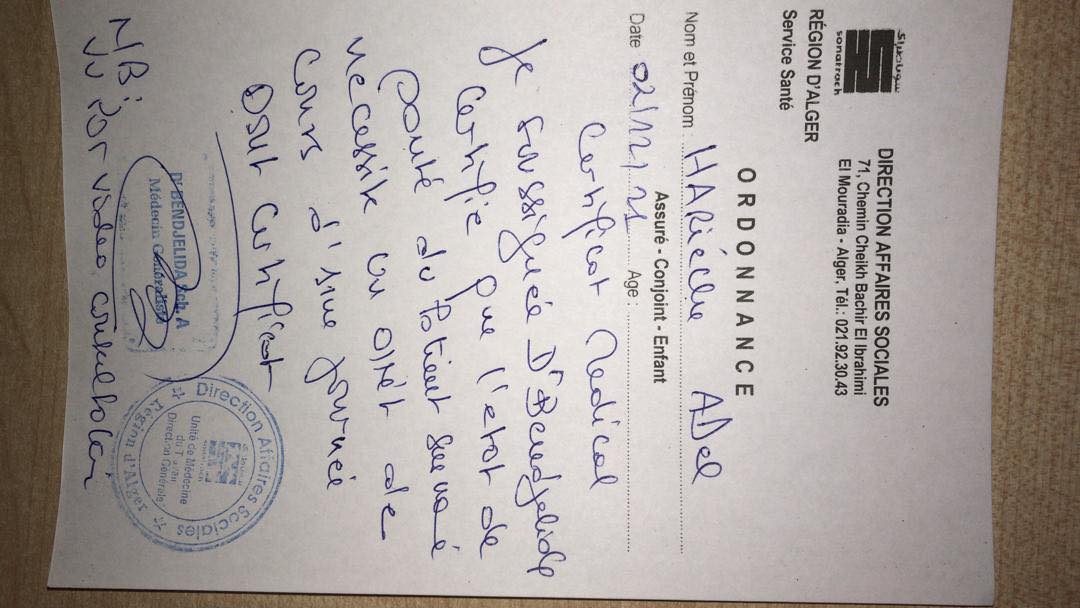 سوناطراك
sonatrach
DIRECTION AFFAIRES SOCIALES
71, Chemin Cheikh Bachir El Ibrahimi
El Mouradia - Alger. Tél.: 021.92.30.43
RÉGION D'ALGER
Service Santé
ORDONNANCE
Nom et Prénom : ADel
Assuré - Conjoint - Enfant
Date 02/12/21 Age :
Certificat Médical
Je soussignée Dr Bendjelida
Certifie que l'état de
santé du Patient
nécessite un arrêt de
cours d'une journée
Dont Certificat
Dr BENDJELIDA Ech.A
Médecin Généraliste
Direction Affaires Sociales
Région d'Alger
Unité de Médecine
du Travail
Direction Générale
N/B:
Vu Par video consultation